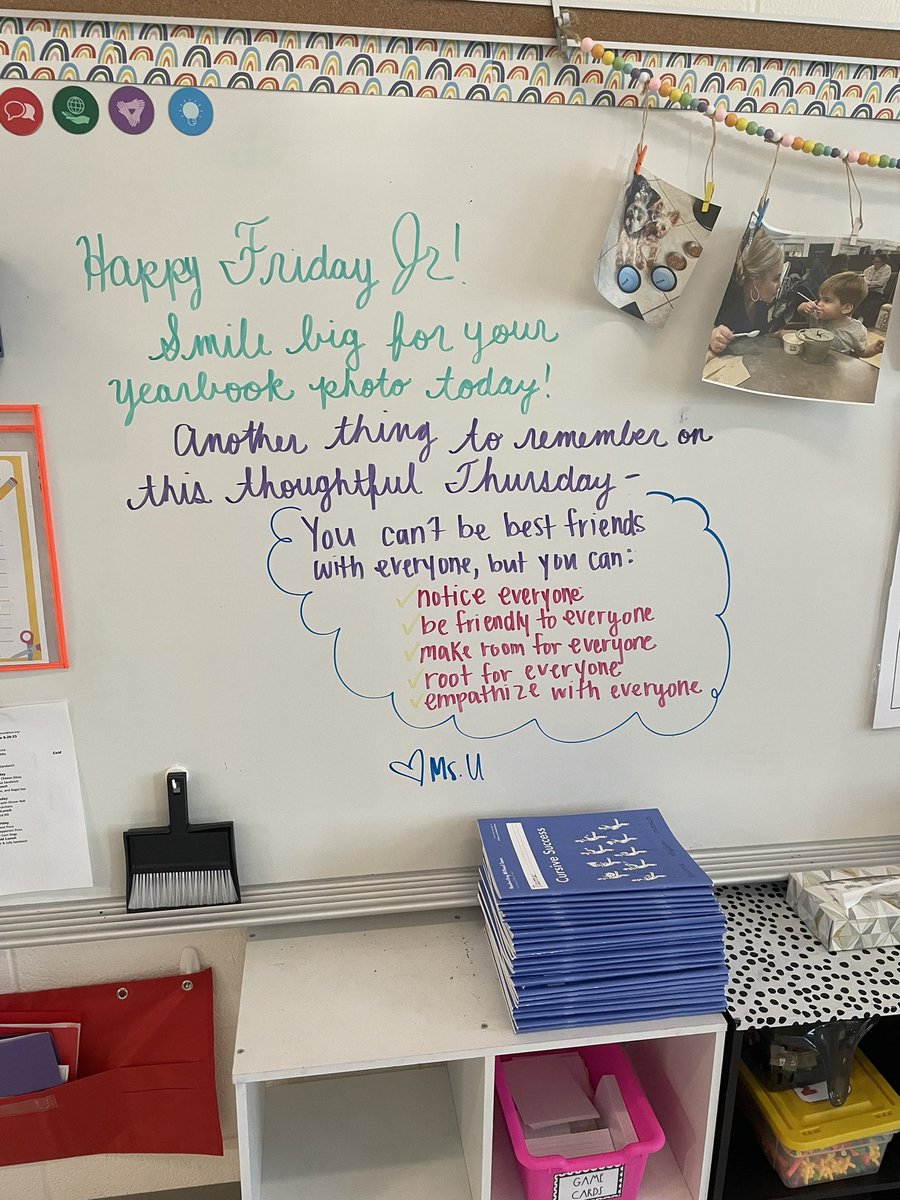 Happy Friday Jr!
Smile big for your
yearbook photo today!
Another thing to remember on
this thoughtful Thursday -
You can't be best friends
with everyone, but you can:
✓ notice everyone
✓ be friendly to everyone
✓ make room for everyone
✓ root for everyone
✓ empathize with everyone
♡ Ms. U
Cursive Success
Name:
GAME
CARDS
Cold